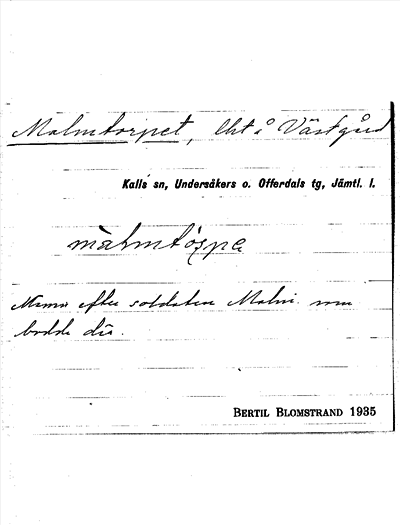 Malmtorpet, lht å Västgård
Kalls sn, Undersåkers o. Offerdals tg, Jämtl. l.
màlmtòṣpe
Namn efter soldaten Malm som
bodde där.
BERTIL BLOMSTRAND 1935